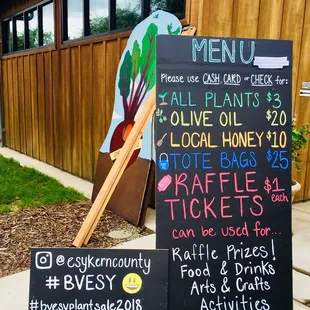 MENU
Please use CASH, CARD or CHECK for:
ALL PLANTS $3
OLIVE OIL $20
LOCAL HONEY $10
TOTE BAGS $25
RAFFLE $1
TICKETS each
can be used for...
Raffle Prizes!
Food & Drinks
Arts & Crafts
Activities
@esykerncounty
#BVESY
#bvesyplantsale2018